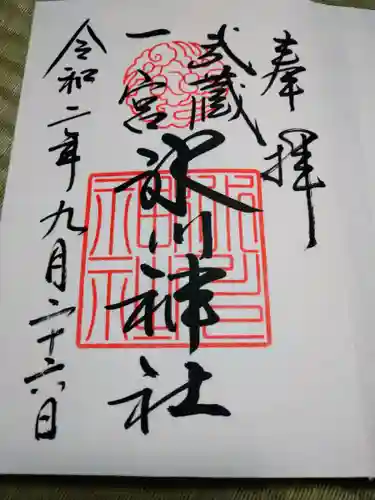 奉拝
武蔵
一宮
氷川神社
令和二年九月二十六日
氷川神社